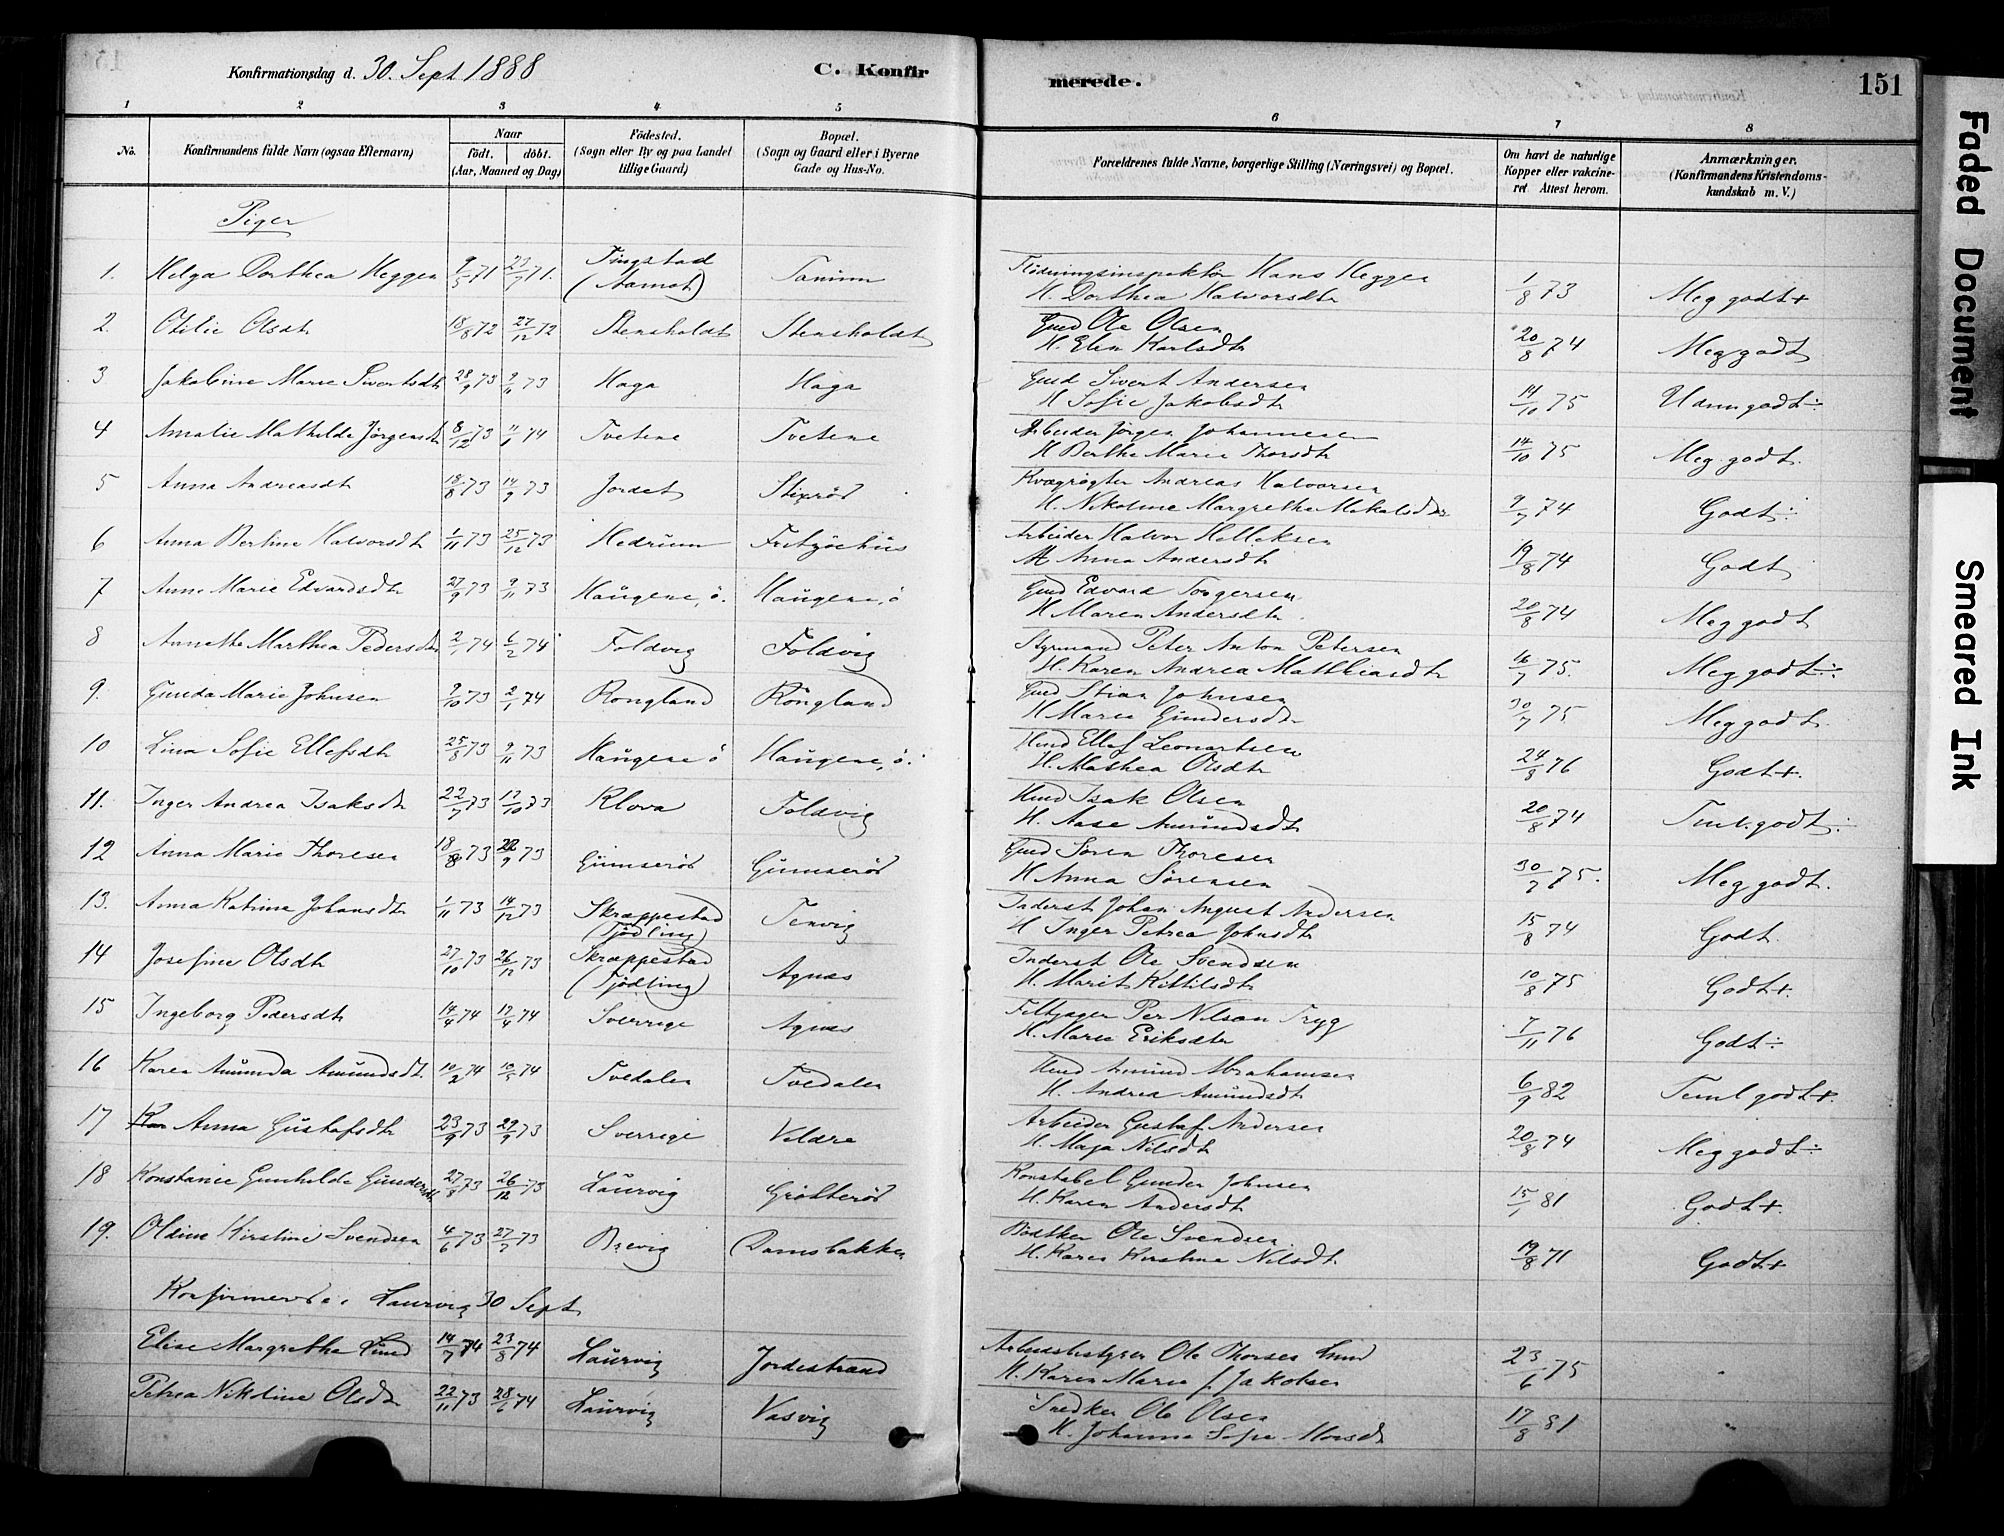 Konfirmationsdag d. 30. Sept 1888
C. Konfirmerede.
151
1 2 3 4 5 6 7 8
No.
Konfirmandens fulde Navn (ogsaa Efternavn)
Naar
födt. döbt.
(Aar, Maaned og Dag)
Födested.
(Sogn eller By og paa Landet tillige Gaard)
Bopæl.
(Sogn og Gaard eller i Byerne Gade og Hus-No.
Forældrenes fulde Navne, borgerlige Stilling (Næringsvei) og Bopæl.
Om havt de naturlige Kopper eller vakcineret Attest herom.
Anmærkninger.
(Konfirmandens Kristendomskundskab m. V.)
Piger
1. Helga Dorthea Heggen 9/5 71 23/7 71. Tingstad (Aamot) Tanum Flødningsinspektør Hans Heggen H. Dorthea Halvorsdtr 1/8 73 Meg godt+
2. Otilie Olsdtr 18/8 72 27/12 72 Stensholdt Stensholdt Gmd Ole Olsen H. Elen Karlsdtr 20/8 74 Meg godt
3 Jakobine Marie Sivertsdtr 28/9 73 9/11 73 Haga Haga Gmd Sivert Andersen H Sofie Jakobsdtr 14/10 75 Udm godt÷
4 Amalie Mathilde Jörgensdtr 8/12 73 11/1 74 Tvetene Tvetene Arbeider Jörgen Johannesen H Berthe Marie Thorsdtr 14/10 75 Meg godt.
5 Anna Andreasdtr 18/8 73 14/9 73 Jordet Stixröd Kvægrögter Andreas Halvorsen H. Nikoline Margrethe Mikalsdtr 9/7 74 Godt÷
6 Anna Bertine Halvorsdtr 1/11 73 25/12 73 Hedrum Fritzöehus Arbeider Halvor Helleksen H Anna Andersdtr 19/8 74 Godt
7 Anne Marie Edvardsdtr 27/9 73 9/11 73 Haugene, ö. Haugene, ö Gmd Edvard Torgersen H Maren Andersdtr 20/8 74 Meg godt
8 Annethe Marthea Pedersdtr 2/1 74 6/2 74 Foldvig Foldvig Styrmand Peter Anton Petersen H. Karen Andrea Mathiasdtr 16/7 75. Meg godt÷
9. Gunda Marie Johnsen 9/10 73 2/1 74 Rongland Röngland Gmd Stian Johnsen H Maren Gundersdtr 30/7 75 Meg godt.
10 Lina Sofie Ellefsdtr 25/8 73 9/11 73 Haugene ö Haugene, ö. Hmd Ellef Leonartsen H. Mathea Olsdtr 24/8 76 Godt+.
11. Inger Andrea Isaksdtr 22/7 73 12/10 73 Klova Foldvig Hmd Isak Olsen H. Aase Amundsdtr 20/8 74 Teml. godt÷
12 Anna Marie Thoresen 18/8 73 22/9 73 Gumseröd Gumseröd Gmd Sören Thoresen H Anna Sörensen 30/7 75. Meg godt.
13. Anna Katrine Johansdtr 1/11 73 14/12 73 Skræppestad (Tjödling) Tenvig Inderst Johan August Andersen H Inger Petrea Johnsdtr 15/8 74 Godt.
14 Josefine Olsdtr 27/10 73 26/12 73 Skræppestad (Tjödling) Agnæs Inderst Ole Svendsen H. Marit Kittilsdtr 10/8 75 Godt+.
15 Ingeborg Pedersdtr 14/4 74 17/4 74 Sverrige Agnæs Feltjæger Per Nilson Tryg H. Marie Eriksdtr 7/11 76 Godt÷
16 Karen Amunda Amundsdt. 10/2 74 10/5 74 Tvedalen Tvedalen Hmd Amund Abrahamsen H. Andrea Amundsdtr 6/9 82 Teml godt+.
17 Anna Gustafsdtr 23/9 73 29/9 73 Sverrige Veldre Arbeider Gustaf Andersen H. Maja Nilsdtr 20/8 74 Meg godt÷
18 Konstance Gunhilde Gundersdtr 27/8 73 26/12 73 Laurvig Grötteröd Konstabel Gunder Johnsen H. Karen Andersdtr 15/1 81 Godt+.
19. Oldine Kirstine Svendsen 4/6 73 27/7 73 Brevig Damsbakken Bödtker Ole Svendsen H. Karen Kirstine Nilsdt. 19/8 71 Godt+
Konfirmerede i Laurvig 30 Sept
Elise Margrethe Lund 14/7 74 23/8 74 Laurvig Jordestrand Arbeidsbestyrer Ole Thorsen Lund H. Karen Marie f. Jakobsen 23/6 75
Petrea Nikoline Olsdtr 22/11 73 28/6 74 Laurvig Vasvig Snedker Ole Olsen H. Johanne Sofie Monsdtr 17/8 81
Faded Document
Smeared Ink